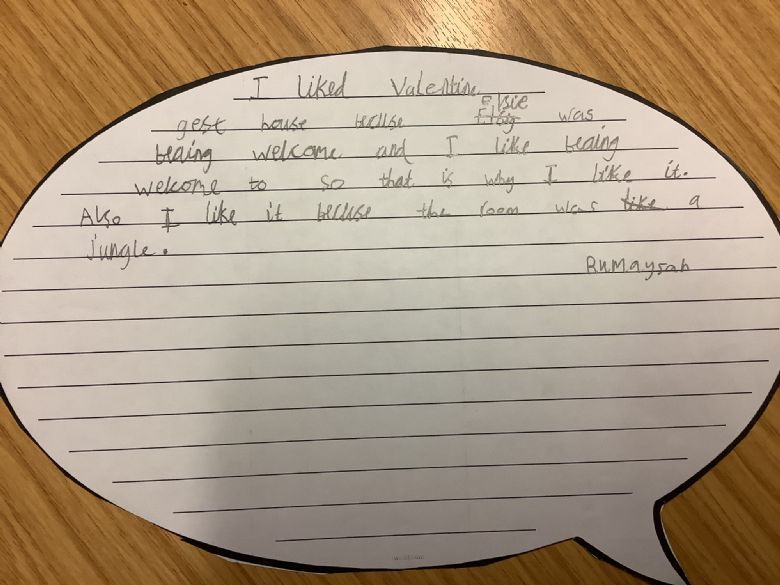 I liked Valentine
gest house becuse elsie was
beaing welcome and I like beaing
welcome to so that is why I like it.
Also I like it becuse the room was like a
jungle.
Rumaysah